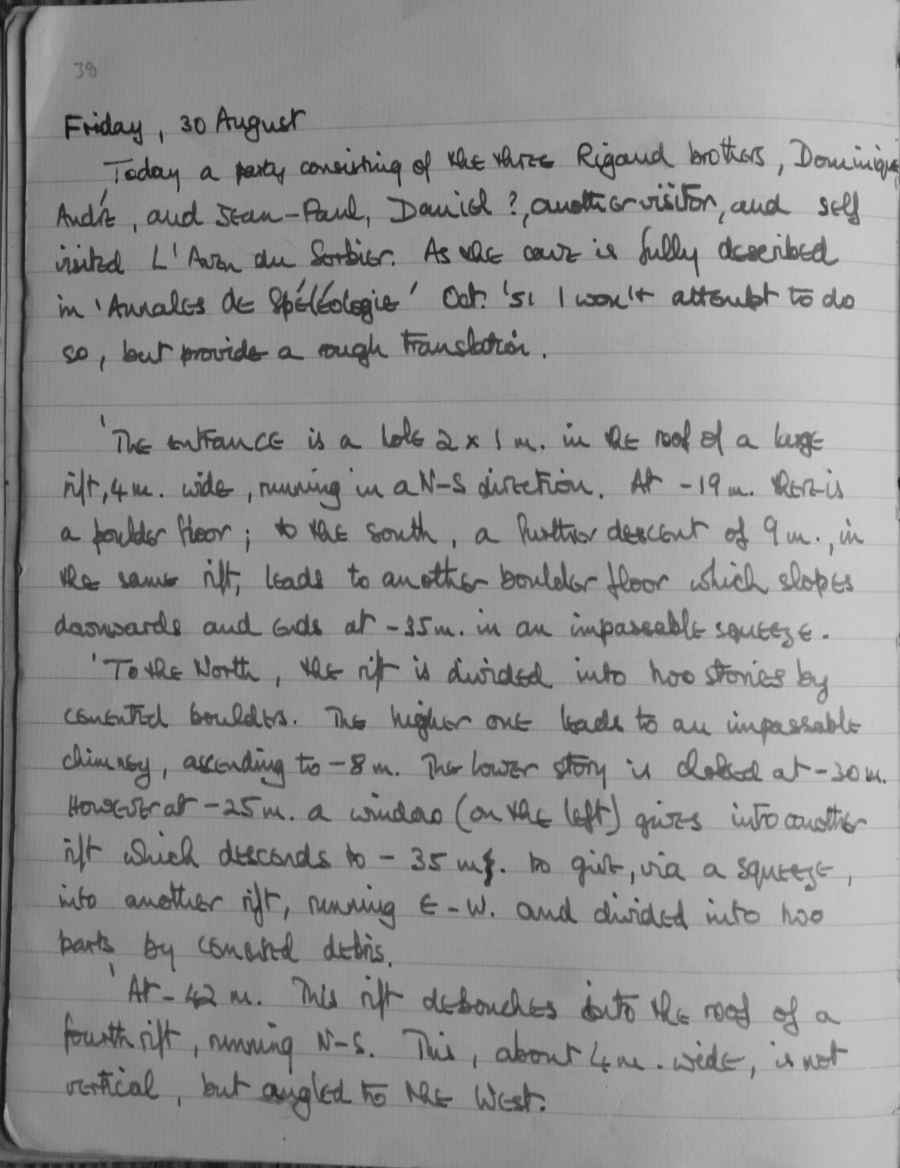 38
Friday, 30 August
Today a party consisting of the three Rigaud brothers, Dominique,
André, and Jean-Paul, Daniel ?, another visitor, and self
visited L'Aven du Sorbier. As the cave is fully described
in 'Annales de Spéléologie' Oct. '51 I won't attempt to do
so, but provide a rough translation.
'The entrance is a hole 2 x 1 m. in the roof of a large
rift, 4 m. wide, running in a N-S direction. At -19 m. there is
a boulder floor; to the south, a further descent of 9 m., in
the same rift, leads to another boulder floor which slopes
downwards and ends at -35 m. in an impassable squeeze.
'To the North, the rift is divided into two stories by
cemented boulders. The higher one leads to an impassable
chimney, ascending to -8 m. The lower story is choked at -30 m.
However at -25 m. a window (on the left) gives into another
rift which descends to -35 m. to give, via a squeeze,
into another rift, running E-W. and divided into two
parts by cemented debris.
'At -42 m. This rift debouches into the roof of a
fourth rift, running N-S. This, about 4 m. wide, is not
vertical, but angled to the West.